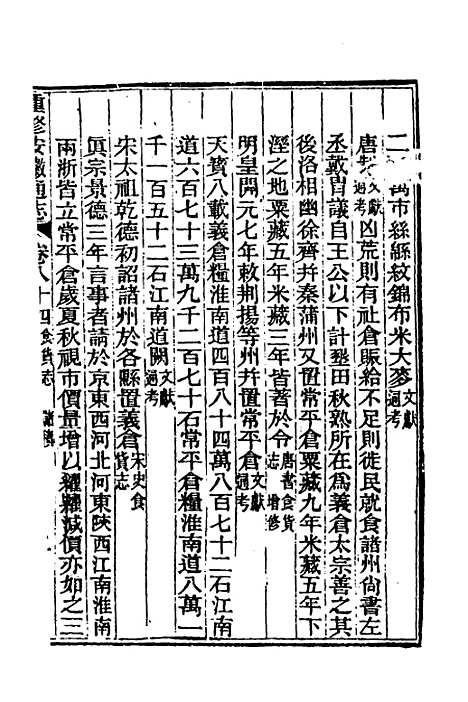 二萬市絲緜紋錦布米大麥文獻通考
唐制文獻通考凶荒則有社倉賑給不足則徙民就食諸州尙書左
丞戴胄議自王公以下計墾田秋熟所在爲義倉太宗善之其
後洛相幽徐齊并秦蒲州又置常平倉粟藏九年米藏五年下
溼之地粟藏五年米藏三年皆著於令唐書食貨志增修
明皇開元七年敕荆揚等州并置常平倉文獻通考
天寶八載義倉糧淮南道四百八十四萬八百七十二石江南
道六百七十三萬九千二百七十石常平倉糧淮南道八萬一
千一百五十二石江南道闕文獻通考
宋太祖乾德初詔諸州於各縣置義倉宋史食貨志
眞宗景德三年言事者請於京東西河北河東陝西江南淮南
兩浙皆立常平倉歲夏秋視市價量增以糴糶減價亦如之三
重修安徽通志 卷八十四食貨志 諸積